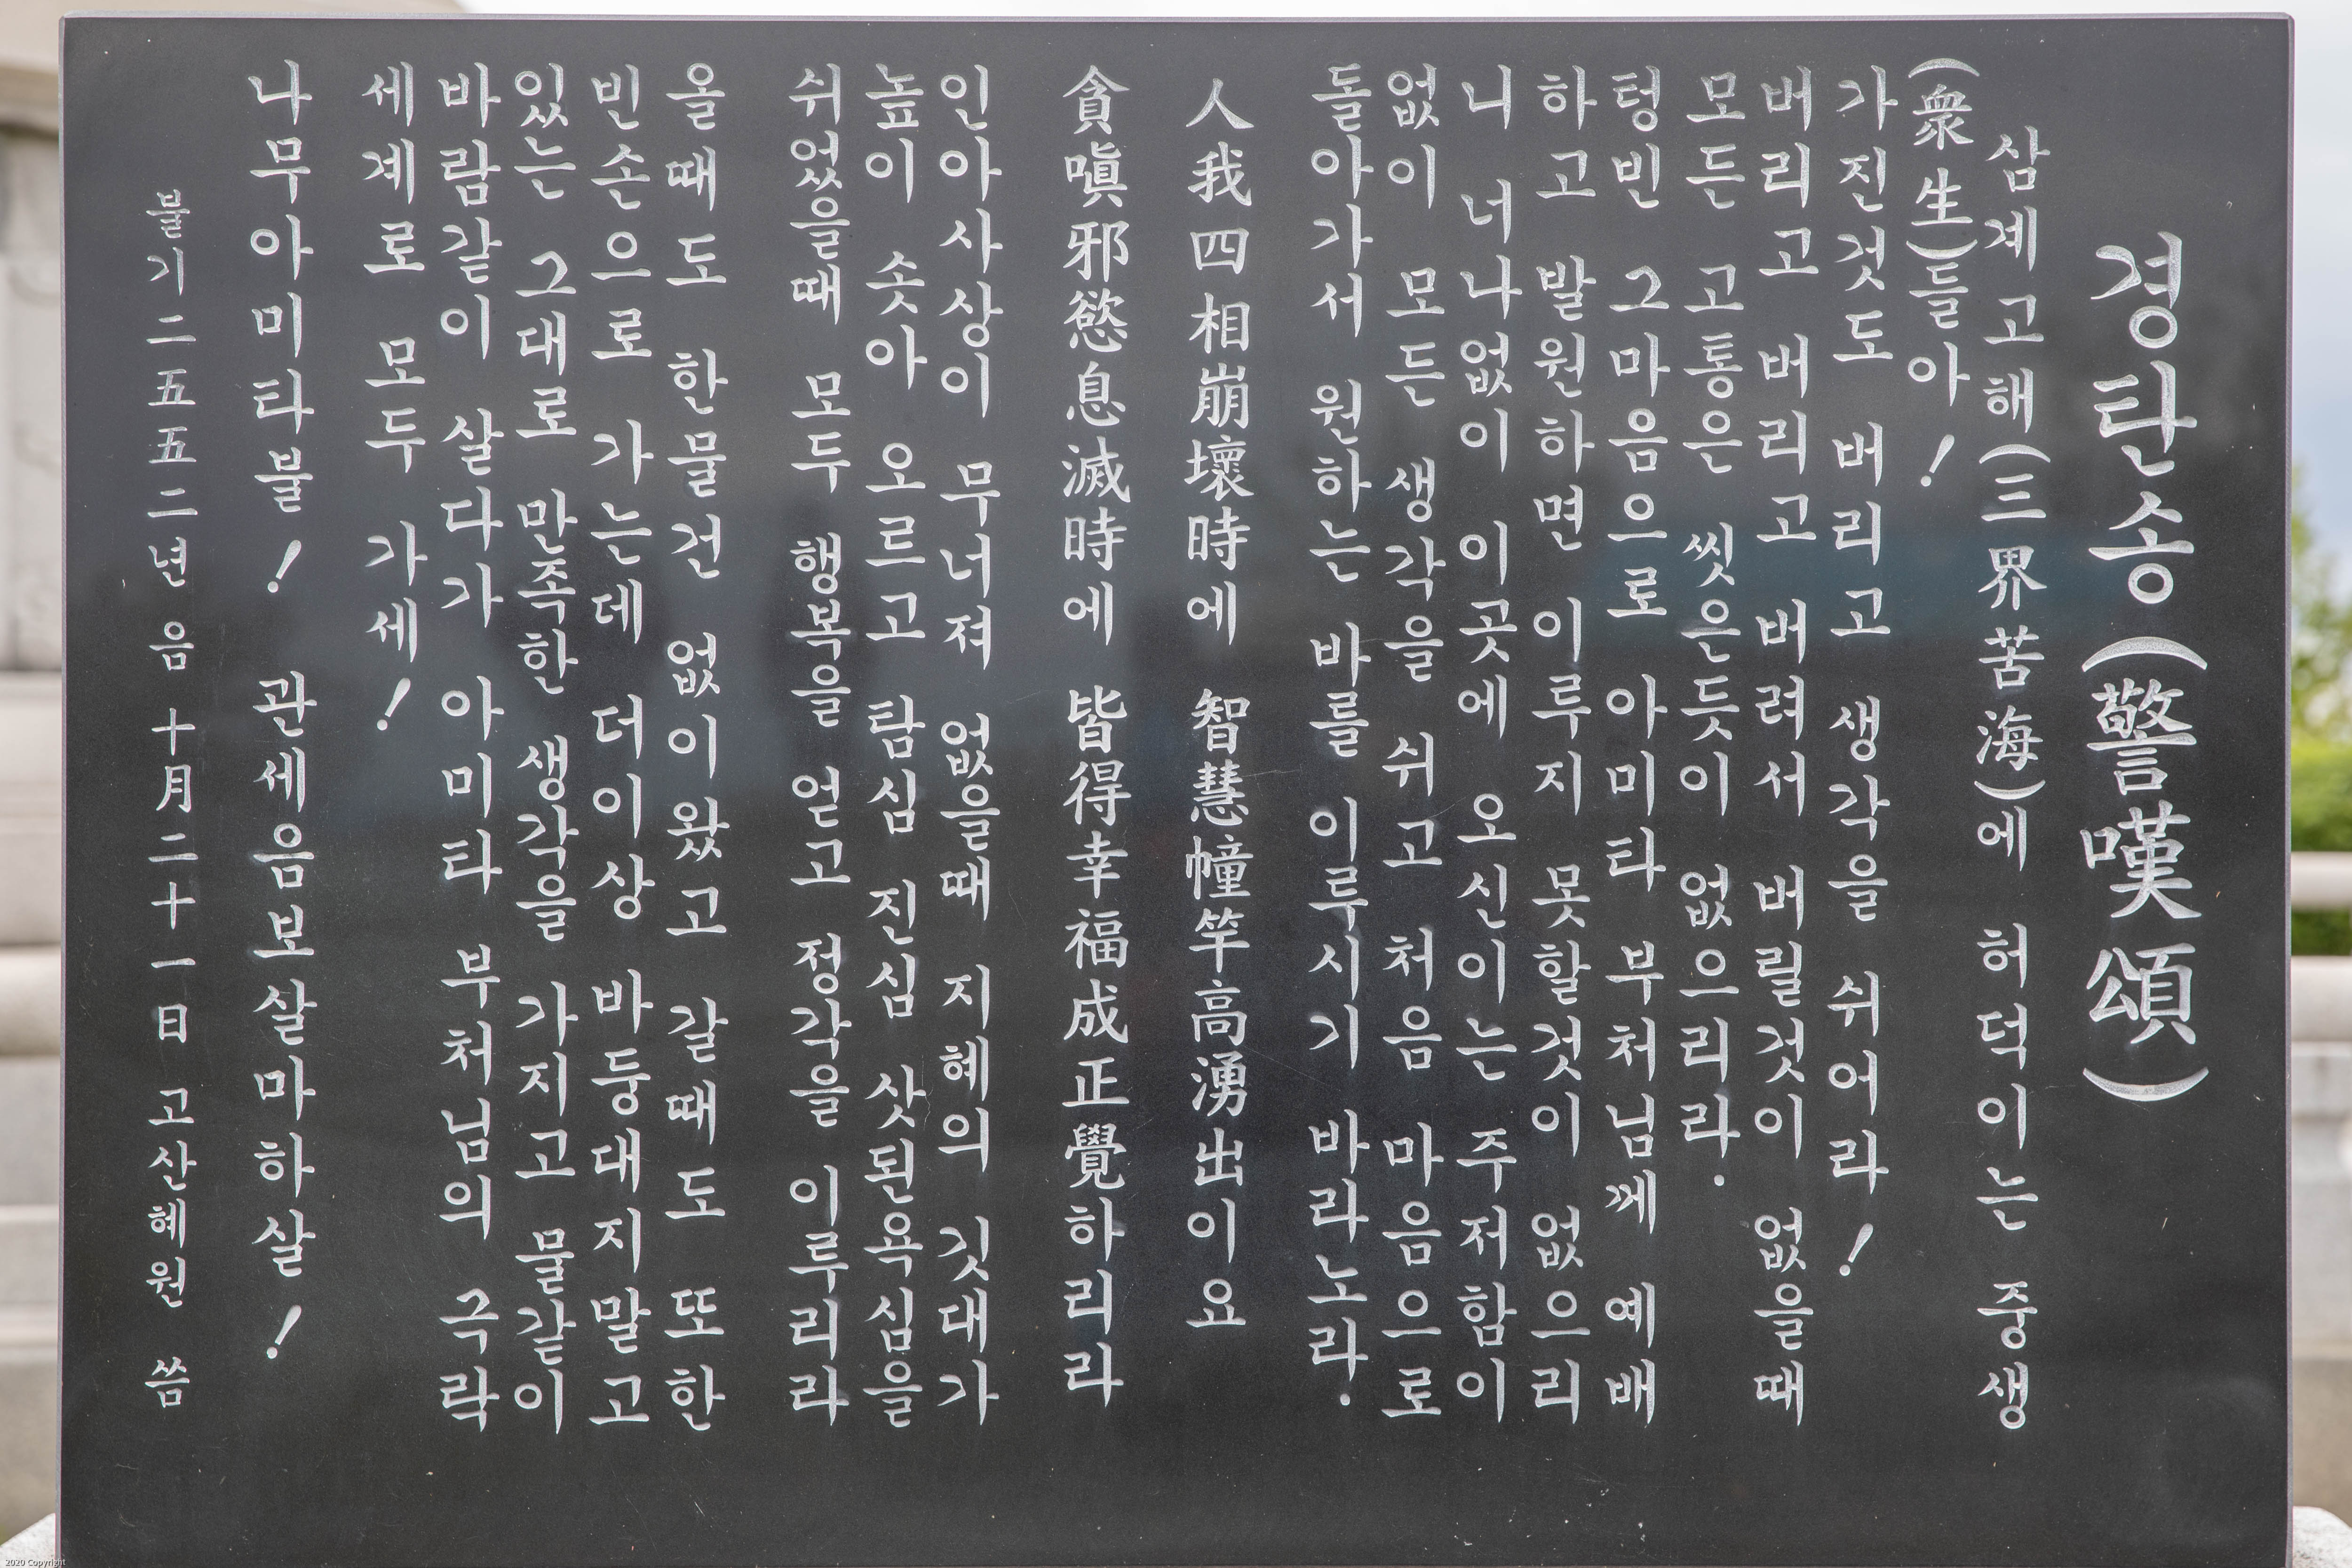 경탄송(警嘆頌)
삼계고해(三界苦海)에 허덕이는 중생
(衆生)들아!
가진것도 버리고 생각을 쉬어라!
버리고 버리고 버려서 버릴것이 없을때
모든 고통은 씻은듯이 없으리라.
텅빈 그마음으로 아미타 부처님께 예배
하고 발원하면 이루지 못할것이 없으리
니 너나없이 이곳에 오신이는 주저함이
없이 모든 생각을 쉬고 처음 마음으로
돌아가서 원하는 바를 이루시기 바라노라.
人我四相崩壞時에 智慧幢竿高湧出이요
貪嗔邪慾息滅時에 皆得幸福成正覺하리라
인아사상이 무너져 없을때 지혜의 깃대가
높이 솟아 오르고 탐심 진심 삿된욕심을
쉬었을때 모두 행복을 얻고 정각을 이루리라
올때도 한물건 없이왔고 갈때도 또한
빈손으로 가는데 더이상 바둥대지말고
있는 그대로 만족한 생각을 가지고 물같이
바람같이 살다가 아미타 부처님의 극락
세계로 모두 가세!
나무아미타불! 관세음보살마하살!
불기二五五二년 음 十月二十一日 고산혜원 씀
2020 Copyright